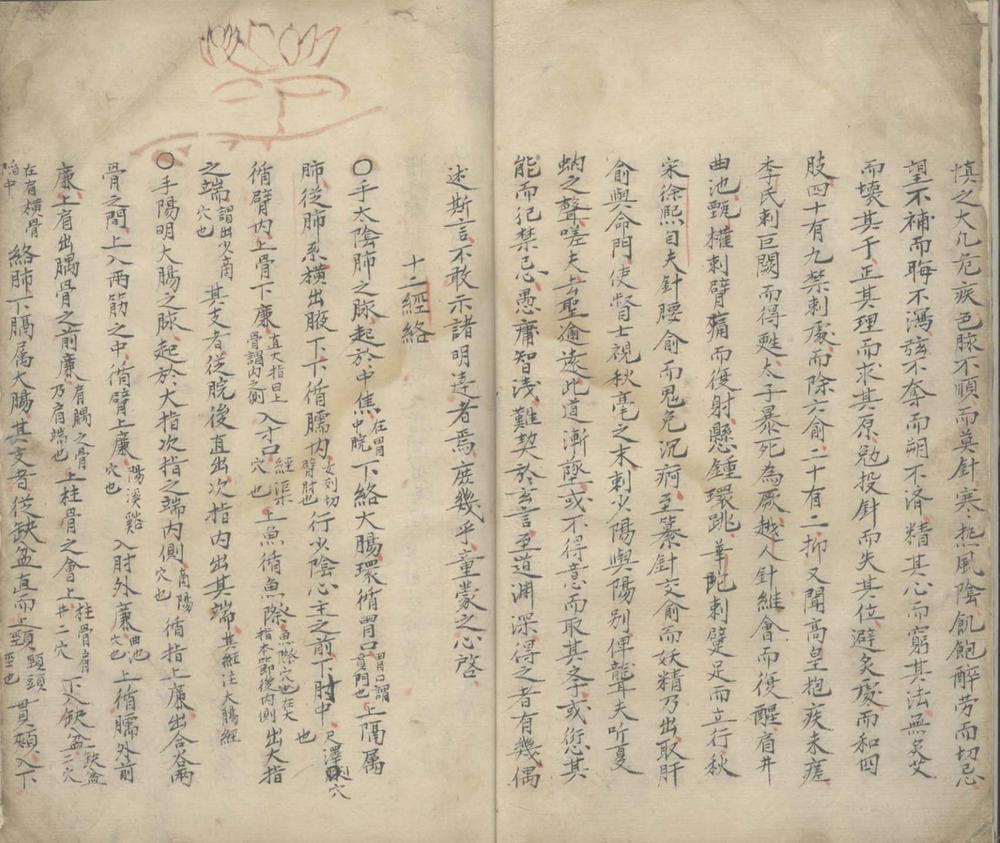 慎之大凡危疾色脉不順而莫針寒热風陰飢飽醉劳而切忌
望不補而晦不瀉弦不奪而朔不济精其心而窮其法無灸艾
而壊其于正其理而求其原勉投針而失其位避灸處而和四
肢四十有九禁刺處而除六俞二十有二抑又聞高皇抱疾未瘥
李氏刺巨闕而得甦太子暴死為厥越人針維會而復醒肩井
曲池甄權刺臂痛而復射懸鍾環跳華陀刺躄足而立行秋
夫針腰俞而鬼免沉痾王纂針交俞而妖精乃出取肝
俞與命門使瞽士視秋毫之末刺少陽與陽別俾聾夫听夏
蚋之聲嗟夫去聖逾遠此道漸墜或不得意而取其孝或愆其
能而犯禁忌愚庸智浅難契於玄言至道渊深得之者有幾偶
述斯言不敢示諸明達者焉庶幾乎童蒙之心啓
十二經絡
〇手太陰肺之脉起於中焦在胃中脘下絡大腸環循胃口胃口謂賁門也上隔属
肺從肺系横出腋下下循臑内臂肘也行少陰心主之前下肘中尺澤穴也
循臂内上骨下廉直大指曰上骨謂内之側入寸口經渠穴也上魚循魚際魚際穴也在大指本節後内側出大指
之端謂出少商穴也其支者從脘後直出次指内出其端其經注大腸經
〇手陽明大腸之脉起於大指次指之端内側商陽穴也循指上廉出合谷兩
骨之間上入兩筋之中循臂上廉陽溪谿穴也入肘外廉曲池穴也上循臑外前
廉上肩出髃骨之前廉肩髃之骨乃肩端也上柱骨之會上柱骨肩井二穴下入缺盆缺盆二穴
在肩横骨陷中絡肺下膈属大腸其支者從缺盆直而上頸頸頭莖也貫頰入下